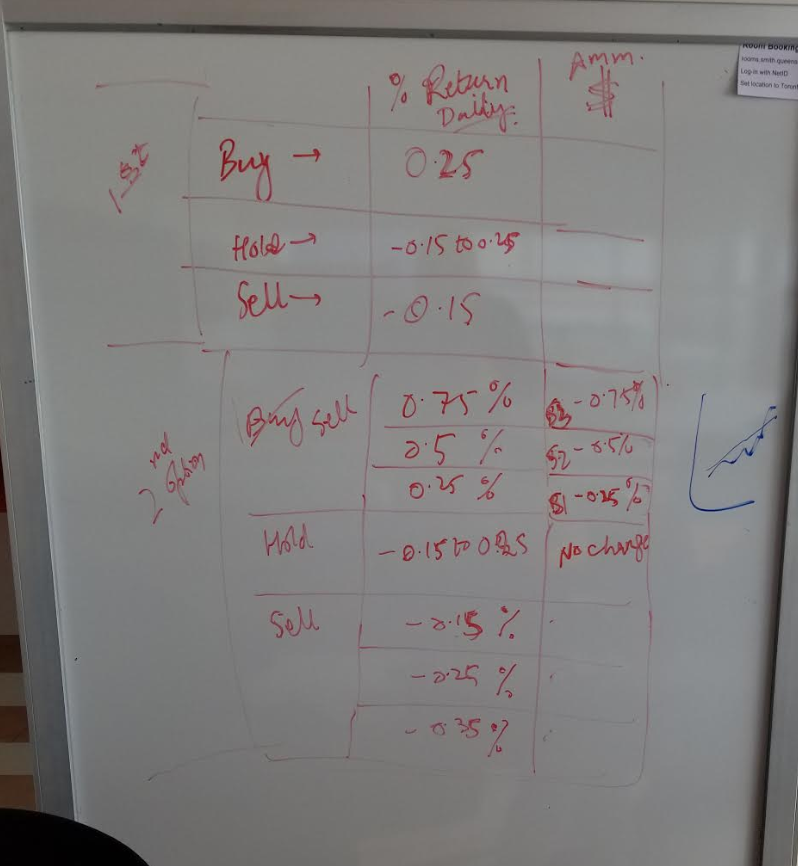 Room Booking
rooms.smith.queens
Log-in with NetID
Set location to Toront
% Return Daily:
Amm. $
1st
Buy → 0.25
Hold → -0.15 to 0.25
Sell → -0.15
2nd Option
Buy Sell 0.75 % S3 - 0.75%
0.5 % S2 - 0.5%
0.25 % S1 - 0.25%
Hold -0.15 to 0.25 No change
Sell -0.15 %
-0.25 %
-0.35 %